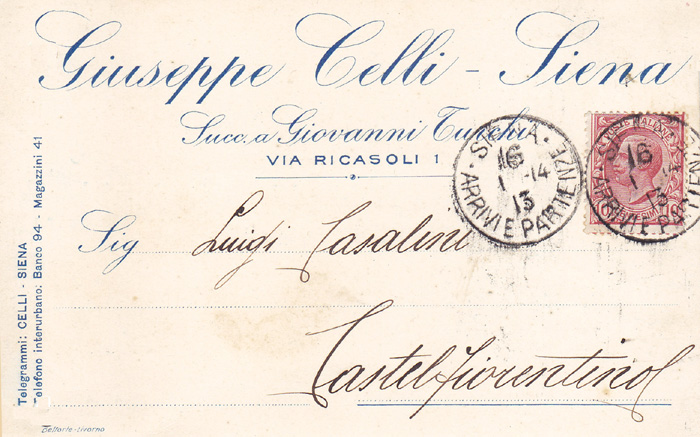 Giuseppe Celli - Siena
Succ. a Giovanni Turchi
VIA RICASOLI 1
SIENA
ARRIVI E PARTENZE
16
1 -14
13
16
1 -14
13
Sig Luigi Casalini
Castelfiorentino
Telegrammi: CELLI - SIENA
Telefono interurbano: Banco 94 - Magazzini 41
Belforte-Livorno